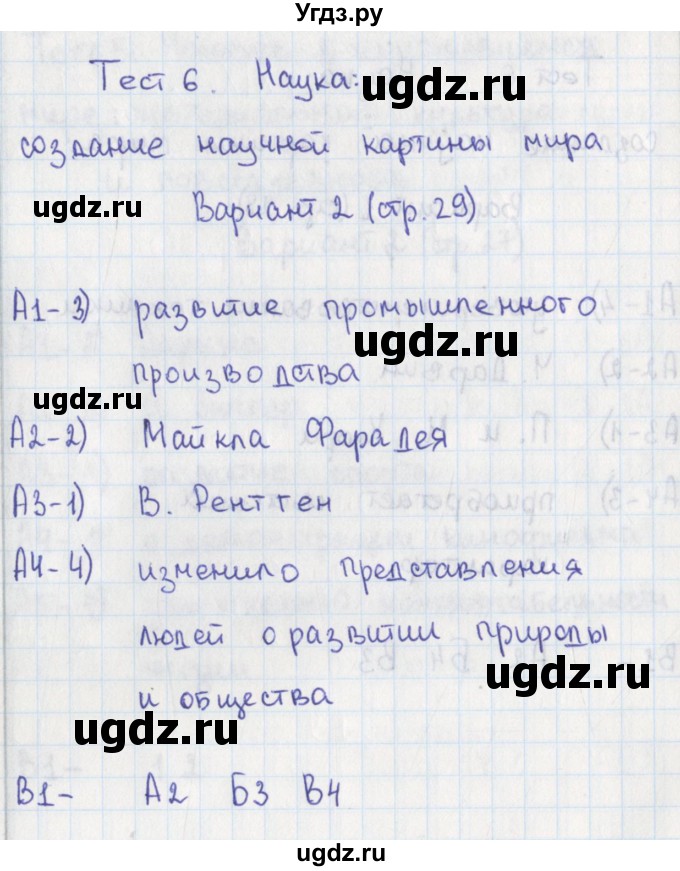 Угдз.ру
Тест 6. Наука:
ugdz.ru
создание научной картины мира
ugdz.ru
Вариант 2 (стр. 29)
А1-3) развитие промышленного
ugdz.ru
производства
ugdz.ru
А2-2) Майкла Фарадея
А3-1) В. Рентген
А4-4) изменило представления
людей о развитии природы
ugdz.ru
и общества
ugdz.ru
В1- А2 Б3 В4
ugdz.ru